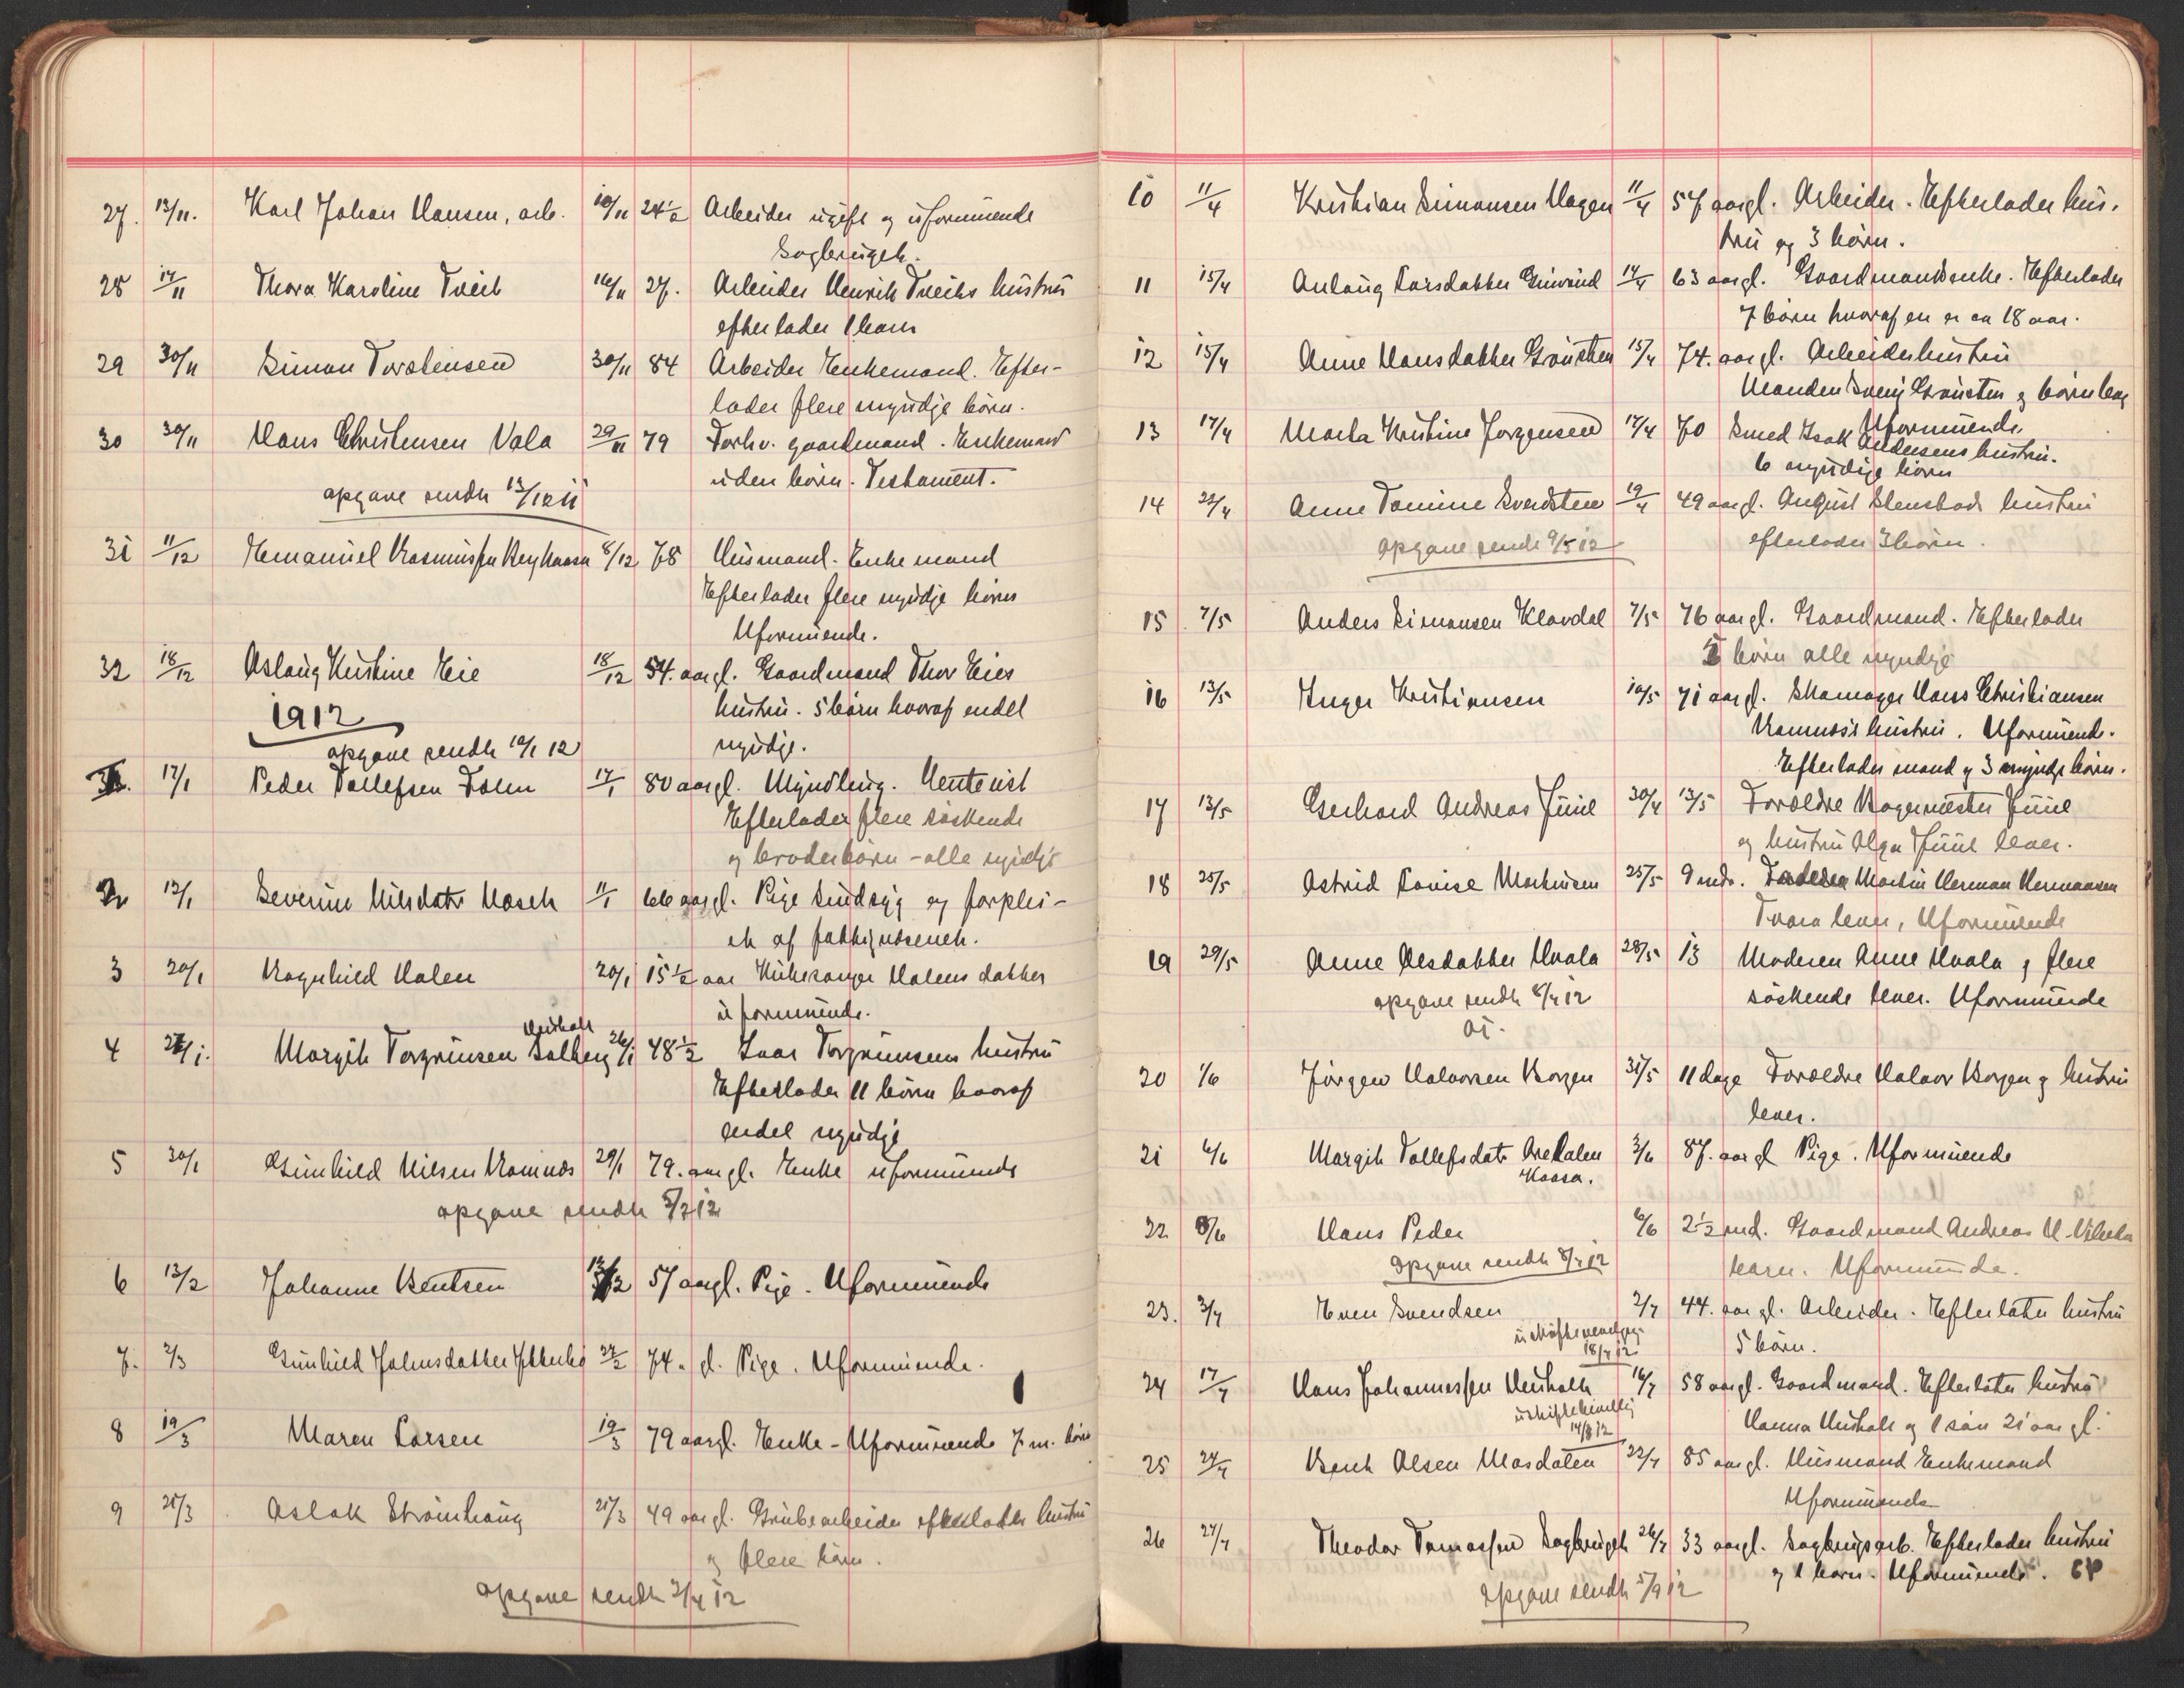 27. 13/11. Karl Johan Hansen, arb. 10/11 24½ Arbeider ugift og uformuende
Sagbruget.
28 17/11 Thora Karoline Tveit 16/11 27. Arbeider Henrik Tveits hustru
efterlader 1 barn
29 30/11 Simon Torstensen 30/11 84 Arbeider Enkemand. Efter-
lader flere myndje børn.
30 30/11 Hans Christensen Vala 29/11 79 Forhv. gaardmand. Enkemand
uden børn. Testament.
opgave sendt 13/12 11
31 11/12 Emanuel Rasmussen 8/12 78 Husmand. Enkemand
Efterlader flere myndje børn
Uformuende.
32 18/12 Aslaug Kristine Eie 18/12 54. aar gl. Gaardmand Thor Eies
hustru. 5 børn hvoraf endel
myndje.
1912
opgave sendt 10/1 12
12/1 Peder Tollefsen 80 aar gl. Myndling. Rentenist
Efterlader flere søskende
og broderbørn - alle myndje
12/1 Severine Nilsdatr 11/1 66 aar gl. Pige sindsyg og forplei-
et af fattigvæsenet.
3 20/1 Ragnhild Halen 20/1 15½ aar Kirkesanger Halens datter
uformuende.
4 27/1. Margit Torgrimsen Solberg 26/1 48½ Ivar Torgrimsens hustru
Efterlader 11 børn hvoraf
endel myndje
5 30/1 Gunhild Nilsen Ramnes 29/1 79. aar gl. Enke uformuende
opgave sendt 5/2 12
6 13/2 Johanne Bentsen 57 aar gl. Pige. Uformuende
7. 2/3 Gunhild Johnsdatter 74. gl. Pige. Uformuende.
8 19/3 Maren Larsen 19/3 79 aar gl. Enke - Uformuende 7 m. børn
9 25/3 Aslak Strømhaug 25/3 49 aar gl. Grubearbeider efterlader hustru
og flere børn.
opgave sendt 2/4 12
10 11/4 Kristian Simonsen Hagen 11/4 57 aar gl. Arbeider. Efterlader hus-
tru og 3 børn.
11 15/4 Anlaug Larsdatter 14/4 63 aar gl. Gaardmandsenke. Efterlader
7 børn hvoraf en er ca 18 aar.
12 15/4 Anne Hansdatter Grausten 15/4 74. aar gl. Arbeiderhustru
Manden Grausten og børn
Uformuende.
13 17/4 Marta Kristine Jørgensen 17/4 70 Smed Isak Andersens hustru.
6 myndige børn
14 22/4 Anne Tomine 19/4 49 aar gl. August hustru
opgave sendt 9/5 12 efterlader 3 børn.
15 7/5 Anders Simonsen Klovdal 7/5 76 aar gl. Gaardmand. Efterlader
børn alle myndje
16 13/5 Inger Kristiansen 10/5 71 aar gl. Skomager Hans Christiansen
Ramnes's hustru. Uformuende.
Efterlader mand og 3 myndje børn.
17 13/5 Gerhard Andreas Juul 30/4 13/5 Forældre Bagermester Juul
og hustru Olga Juul lever.
18 25/5 Astrid Lovise Martinsen 25/5 9 mdr. Martin Herman Hermansen
lever, Uformuende
19 29/5 Anne Olsdatter Hvala 28/5 13 Moderen Anne Hvala og flere
opgave sendt 8/7 12 søskende lever. Uformuende
20 1/6 Jørgen Halvorsen Borgen 31/5 11 dage Forældre Halvor Borgen og hustru
lever.
21 6/6 Margit Tollefsdatr 3/6 87. aar gl Pige. Uformuende
Kaasa.
22 8/6 Hans Peder 6/6 2½ md. Gaardmand Andreas
opgave sendt 8/7 12 barn. Uformuende.
23. 3/7 Even Svendsen 2/7 44. aar gl. Arbeider. Efterlater hustru
18/7 12 5 børn.
24 17/7 Hans Johannessen 16/7 58 aar gl. Gaardmand. Efterlater hustru
14/8 12 Hanna og 1 søn 21 aar gl.
25 24/7 Bent Olsen Masdalen 22/7 85 aar gl. Husmand Enkemand
Uformuende
26 27/7 Theodor Tomassen Sagbruget 26/7 33 aar gl. Sagbrugsarb. Efterlader hustru
og 1 barn. Uformuende.
opgave sendt 5/9 12